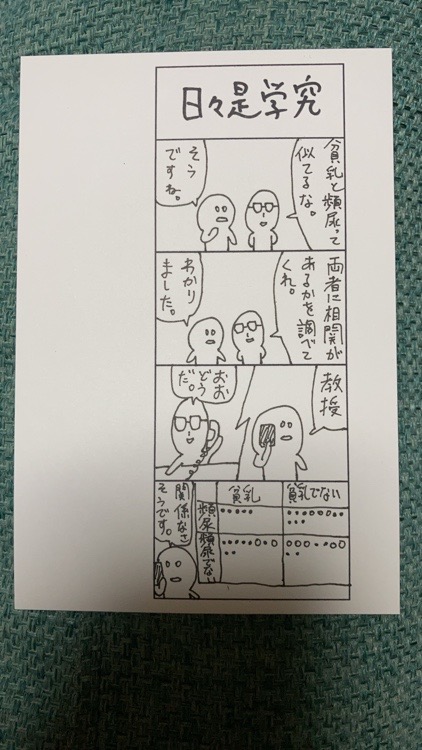 日々是学究
貧乳と頻尿って
似てるな。
そう
ですね。
両者に相関が
あるかを調べて
くれ。
わかり
ました。
教授
おお
どう
だ。
貧乳
貧乳でない
頻尿
頻尿でない
関係なさ
そうです。